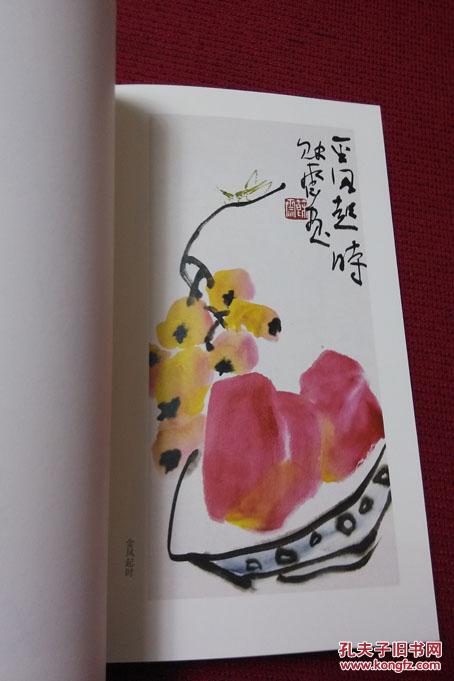 金风起時
金风起时
孔夫子旧书网
www.kongfz.com